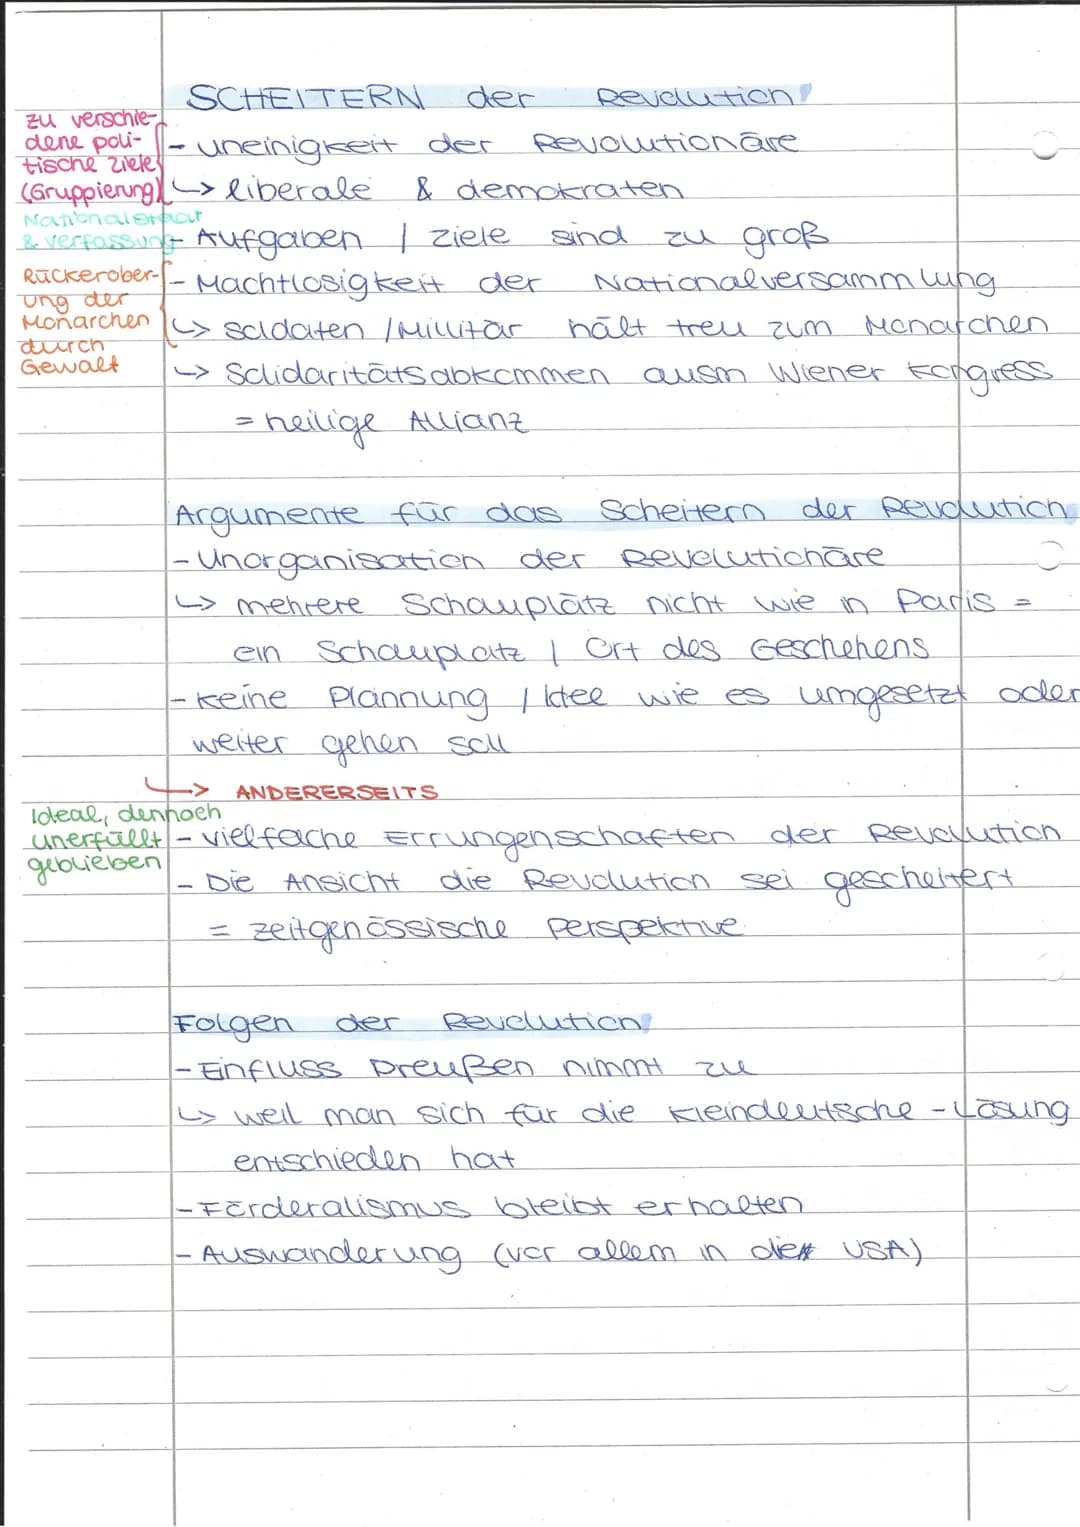 SCHEITERN der Revolution
zu verschie-
dene poli-
tische ziele
(Gruppierung)
- uneinigkeit der Revolutionäre
↳ liberale & demokraten
Nationalstaat
& verfassung
- Aufgaben / ziele sind zu groß
Rückerober-
ung der
Monarchen
durch
Gewalt
- Machtlosigkeit der Nationalversammlung
↳ soldaten / Millitär hält treu zum Monarchen
↳ Solidaritätsabkommen ausm Wiener Kongress
= heilige Allianz
Argumente für das Scheitern der Revolution
- Unorganisation der Revolutionäre
↳ mehrere Schauplätz nicht wie in Paris =
ein Schauplatz / Ort des Geschehens
- keine Plannung / Idee wie es umgesetzt oder
weiter gehen soll
↳ ANDERERSEITS
Ideal, dennoch
unerfüllt
geblieben
- vielfache Errungenschaften der Revolution
- Die Ansicht die Revolution sei gescheitert
= zeitgenössische Perspektive
Folgen der Revolution
- Einfluss Preußen nimmt zu
↳ weil man sich für die Kleindeutsche - Lösung
entschieden hat
- Förderalismus bleibt erhalten
- Auswanderung (vor allem in die USA)